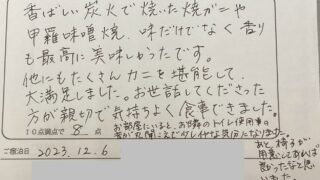 香ばしい炭火で焼いた焼ガニや
甲羅味噌焼、味だけでなく香り
も最高に美味しかったです。
他にもたくさんカニを堪能して、
大満足しました。お世話してくださった
方が親切で気持ちよく食事できました。
10点満点で 8 点
お部屋にいると、お隣のトイレ使用車の
音が丸聞こえで少し仕様な気分になりました。
あと、椅子が
用意してあれば
良かったなと思
いました。
ご宿泊日 2023.12.6